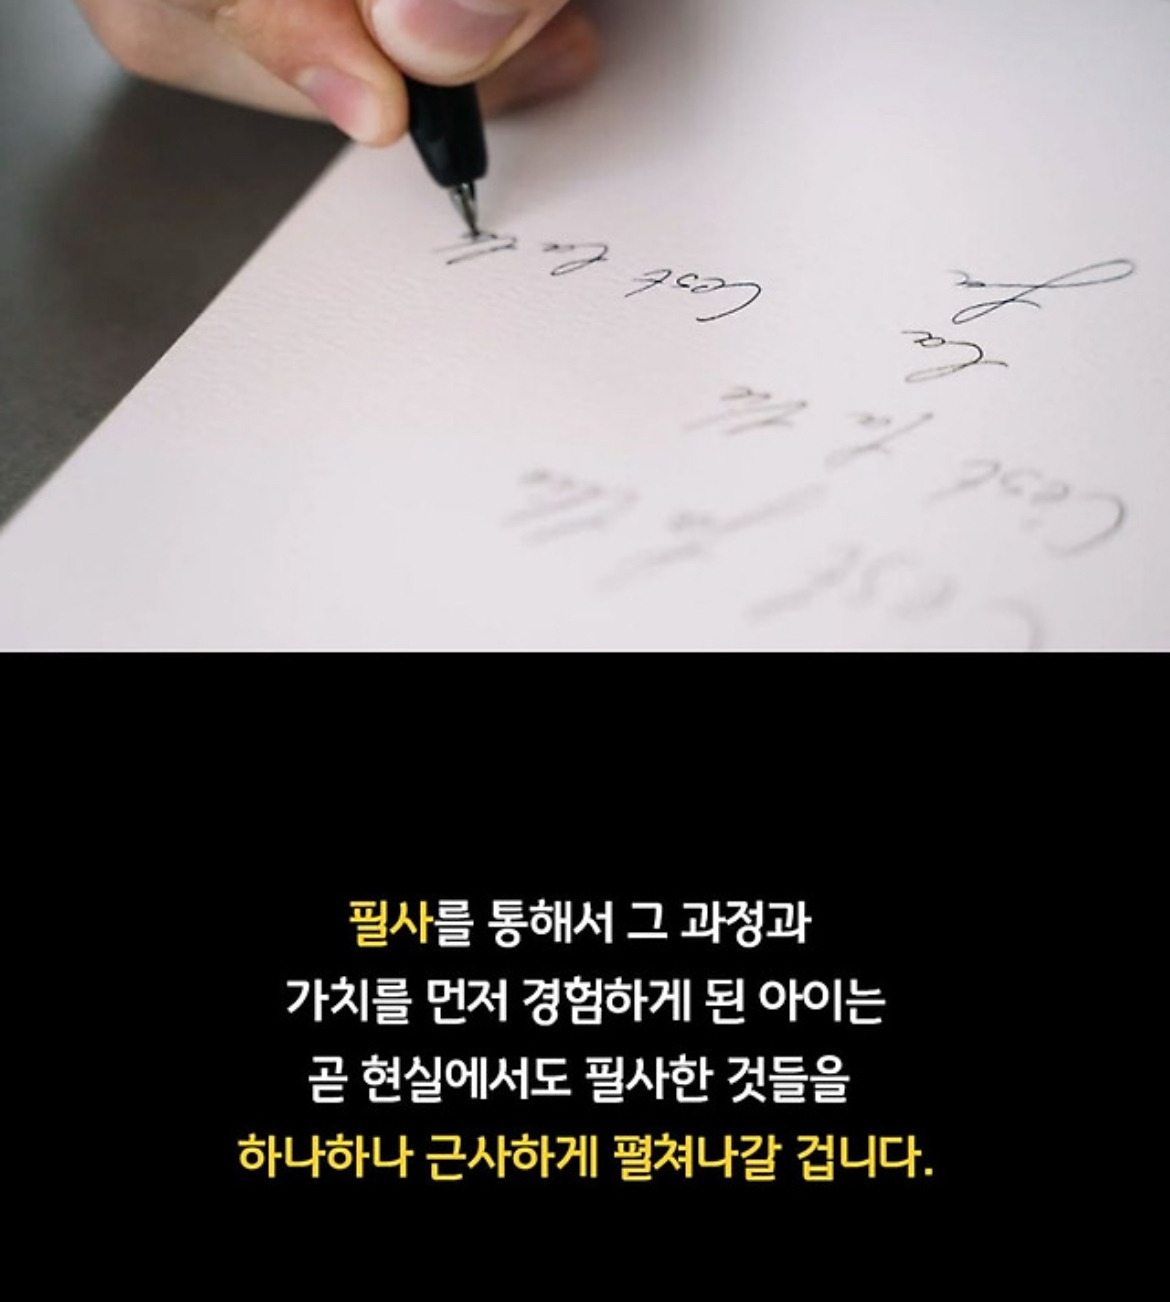 C'est la vie
La
C'est la vie
C'est la vie
필사를 통해서 그 과정과
가치를 먼저 경험하게 된 아이는
곧 현실에서도 필사한 것들을
하나하나 근사하게 펼쳐나갈 겁니다.